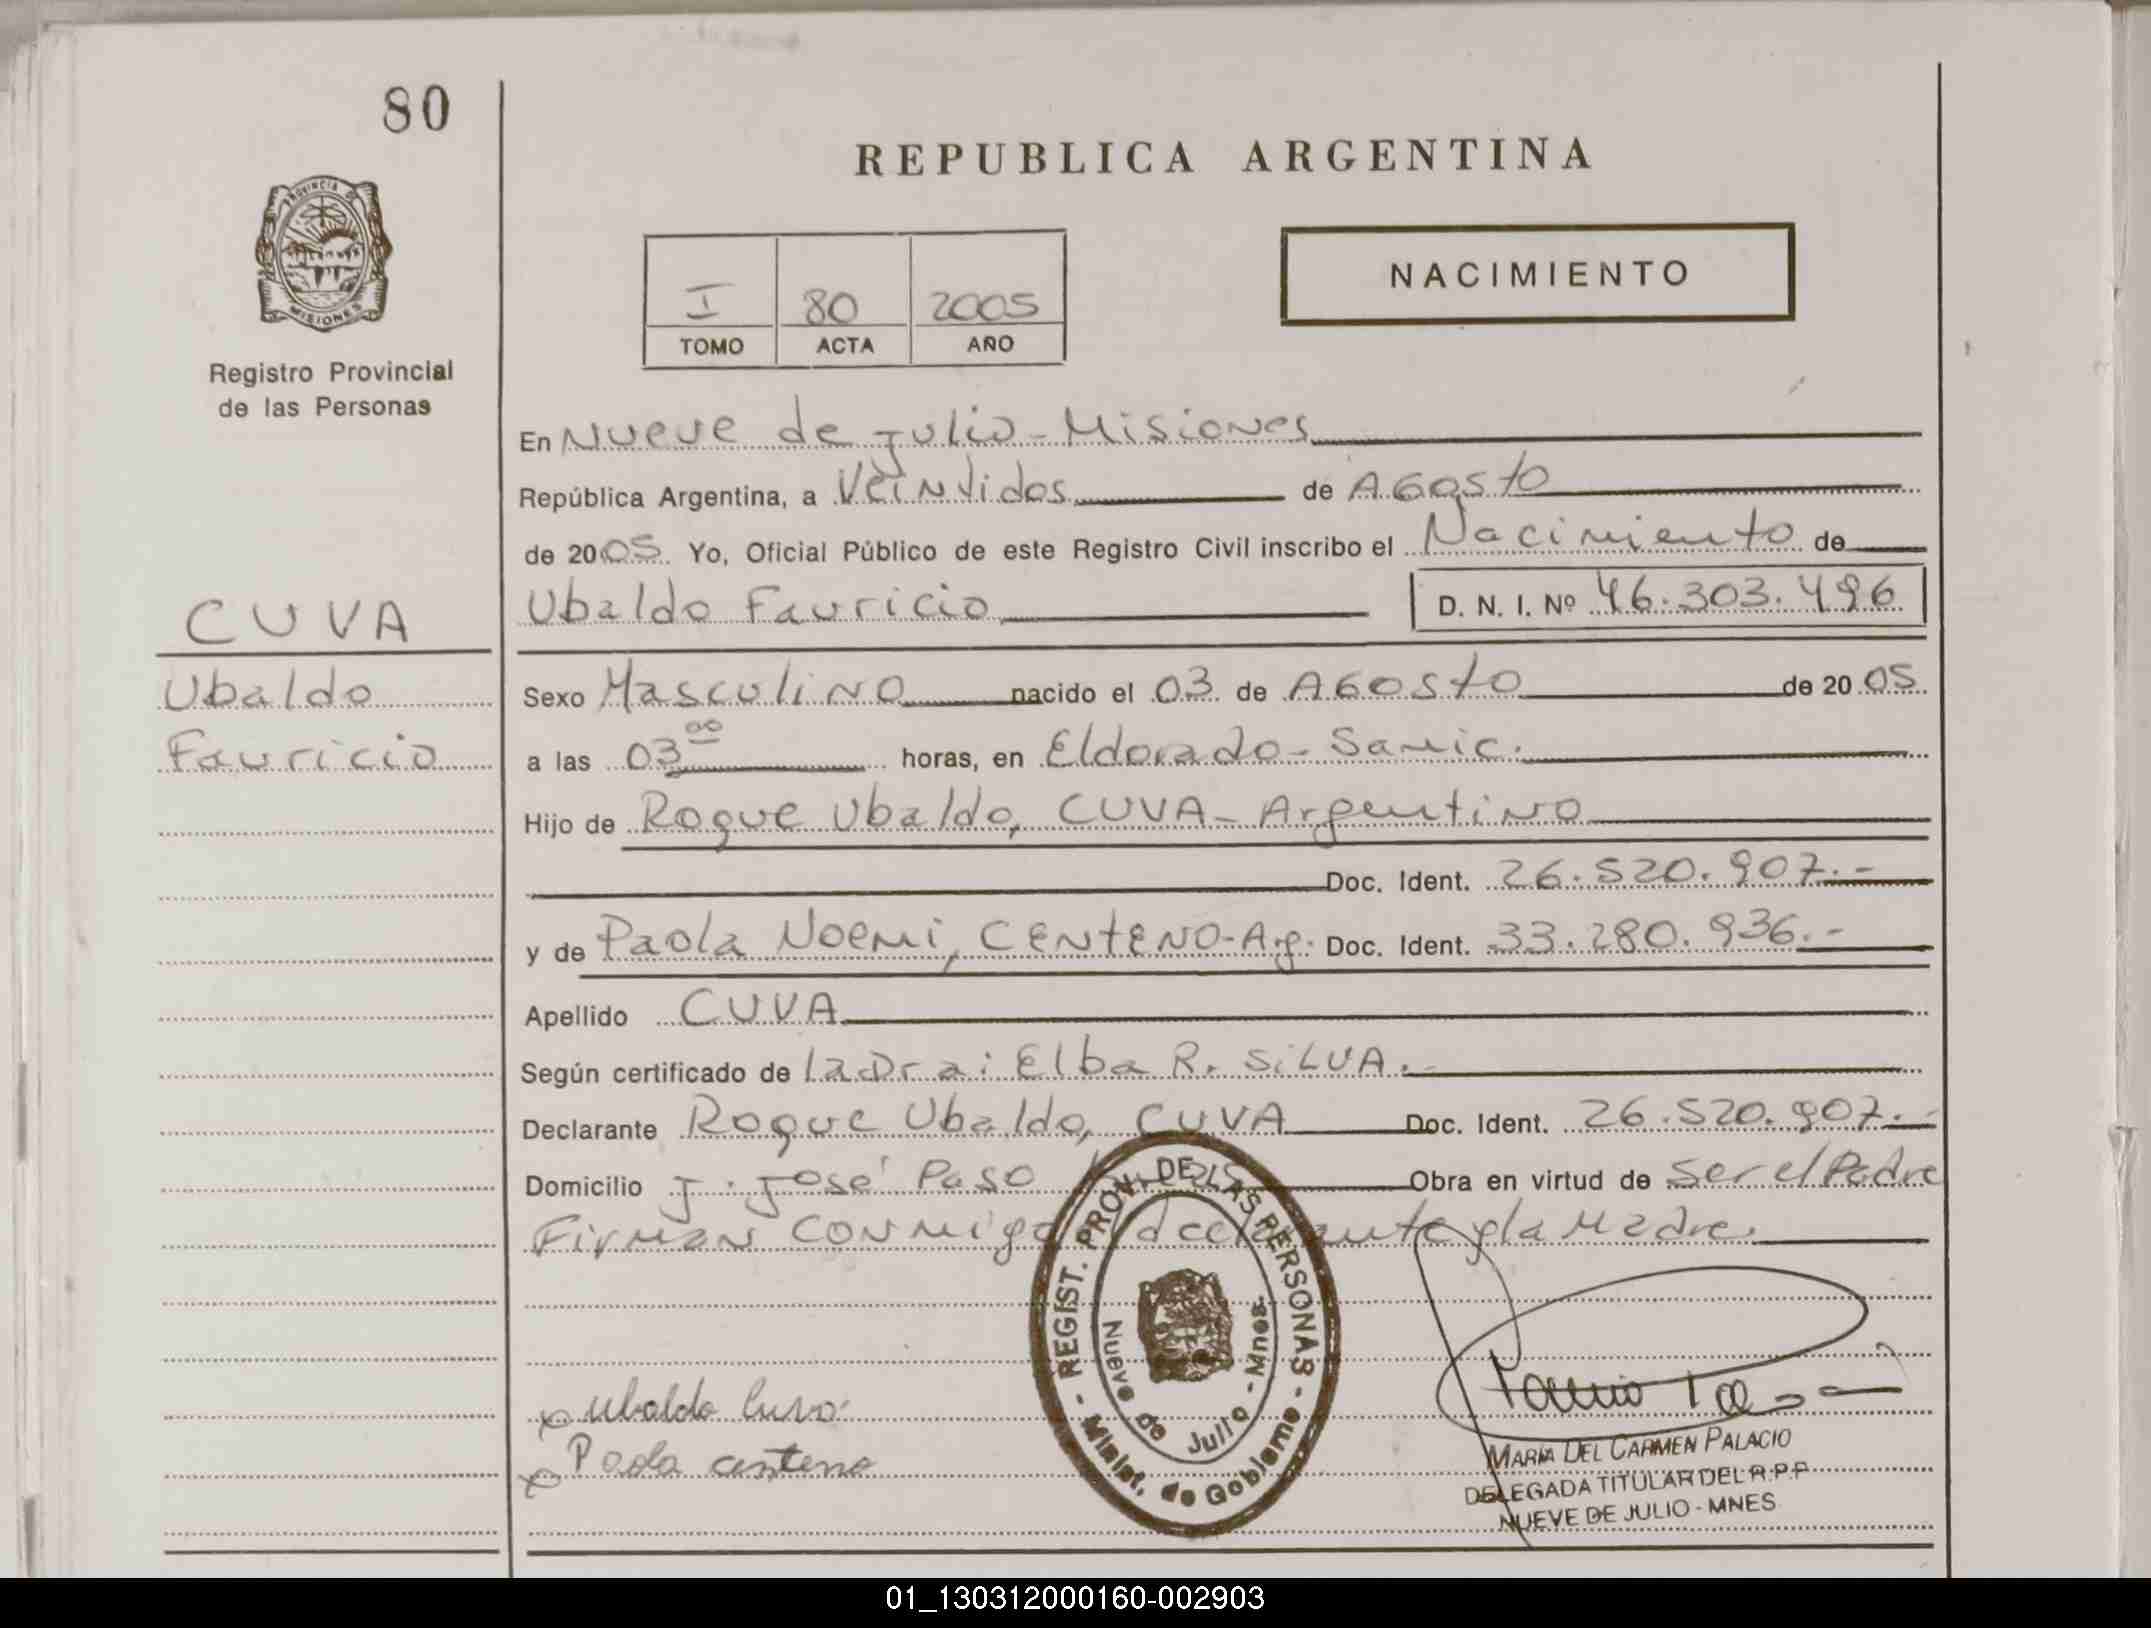 80
REPUBLICA ARGENTINA
PROVINCIA DE
MISIONES
Registro Provincial
de las Personas
I 80 2005
TOMO ACTA AÑO
NACIMIENTO
En Nueve de Julio - Misiones
República Argentina, a Veintidos de Agosto
de 2005. Yo, Oficial Público de este Registro Civil inscribo el Nacimiento de
Ubaldo Fauricio D. N. I. Nº 46.303.496
CUVA
Ubaldo
Fauricio
Sexo Masculino nacido el 03 de Agosto de 2005
a las 03 00 horas, en Eldorado - Samic.
Hijo de Roque Ubaldo, CUVA - Argentino
Doc. Ident. 26.520.907.-
y de Paola Noemi, CENTENO - Arg. Doc. Ident. 33.280.936.-
Apellido CUVA
Según certificado de la Dra: Elba R. SILVA.-
Declarante Roque Ubaldo, CUVA Doc. Ident. 26.520.907.-
Domicilio J. José Paso Obra en virtud de Ser el Padre
Firman conmigo declarante y la Madre.
REGIST. PROV. DE LAS PERSONAS
Nueve de Julio - Mnes.
- Minist. de Gobierno -
Ubaldo Cuva
Paola centeno
MARIA DEL CARMEN PALACIO
DELEGADA TITULAR DEL R.P.P
NUEVE DE JULIO - MNES.
01_130312000160-002903